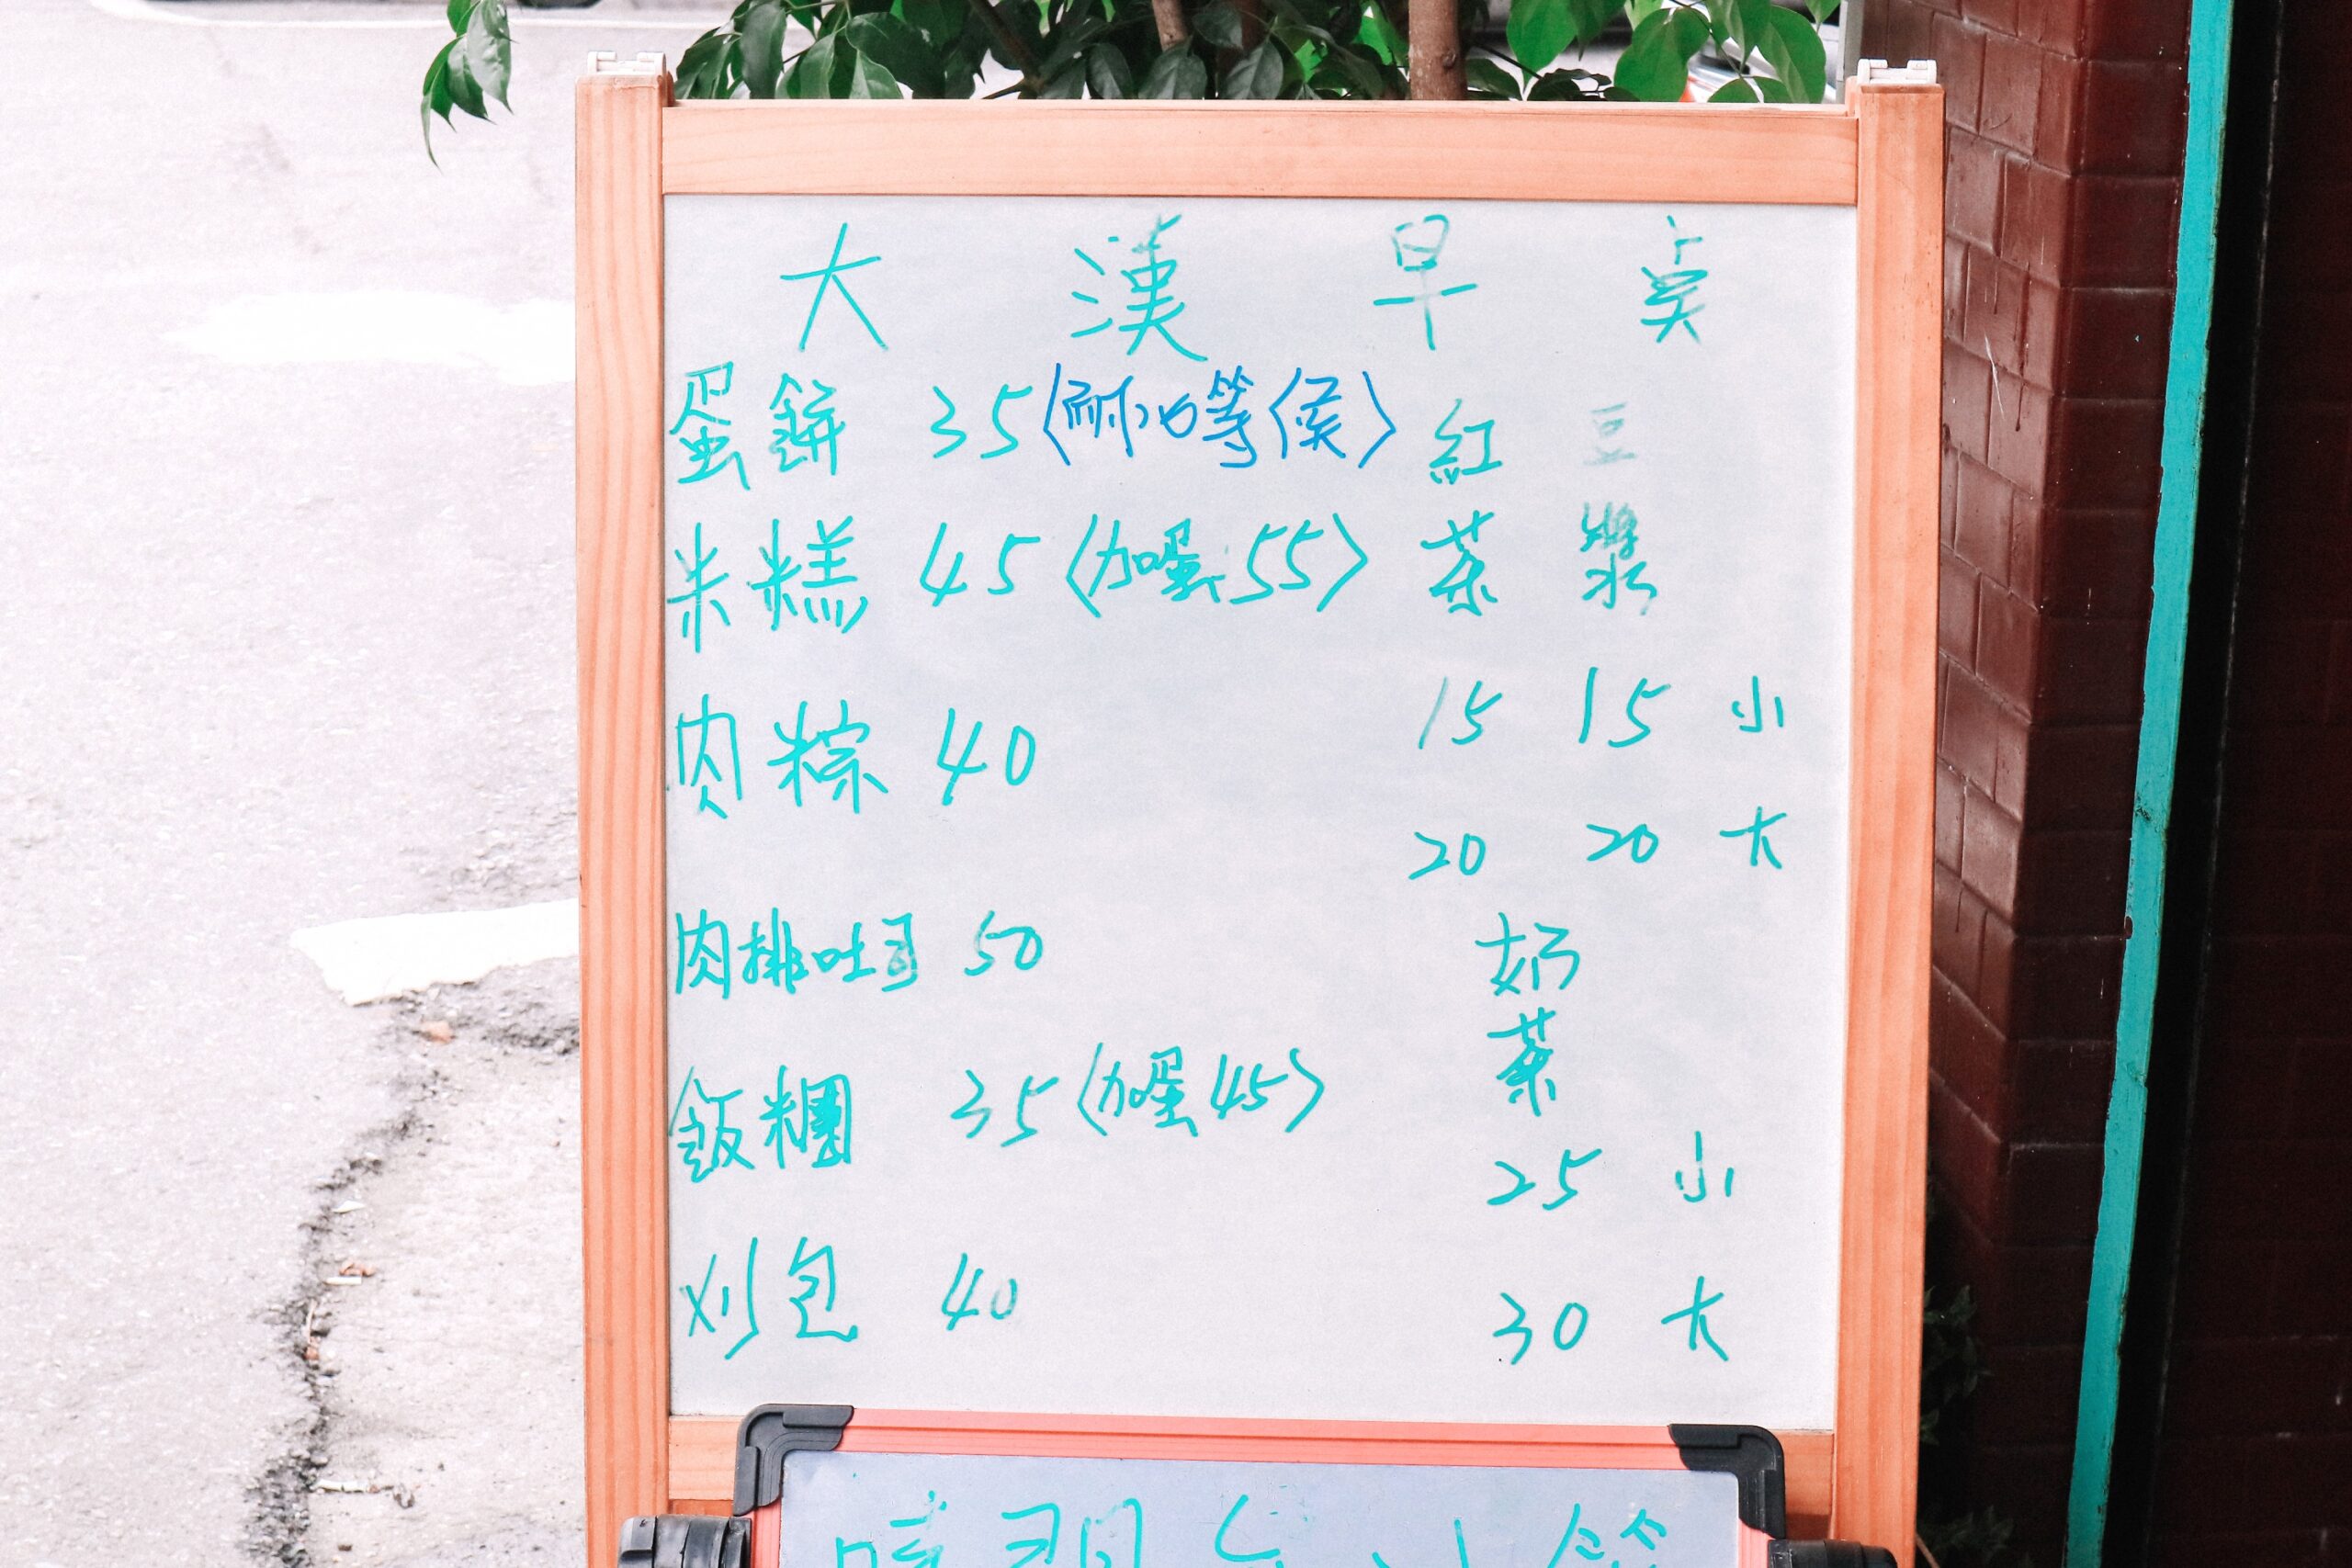 大漢早点
蛋餅 35〈耐心等候〉
米糕 45〈加蛋 55〉
肉粽 40
肉排吐司 50
飯糰 35〈加蛋 45〉
刈包 40
紅茶 豆漿
15 15 小
20 20 大
奶茶
25 小
30 大